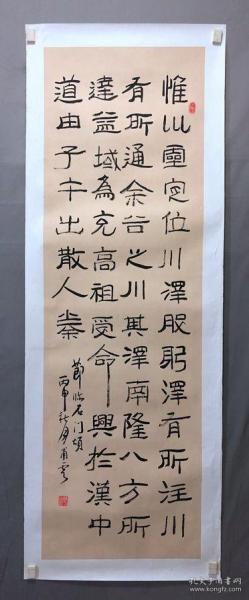 惟㕥靈定位川澤股躬澤有所注川
有所通余谷之川其澤南隆八方所
達益域為充高祖受命興於漢中
道由子午出散入秦
節临石门頌
丙申秋月